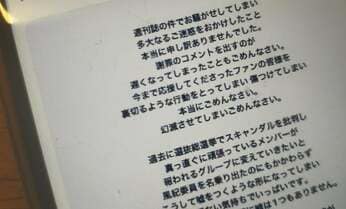 週刊誌の件でお騒がせしてしまい
多大なるご迷惑をおかけしたこと
本当に申し訳ありませんでした。
謝罪のコメントを出すのが
遅くなってしまったこともごめんなさい。
今まで応援してくださったファンの皆様を
裏切るような行動をとってしまい傷つけてしまい
本当にごめんなさい。
幻滅させてしまいごめんなさい。
過去に選抜総選挙でスキャンダルを批判し
真っ直ぐに頑張っているメンバーが
報われるグループに変えていきたいと
風紀委員を名乗り出たのにもかかわらず
こうして嘘をつくような形になってしまい
ない気持ちでいっぱいです。
は1つもありません。